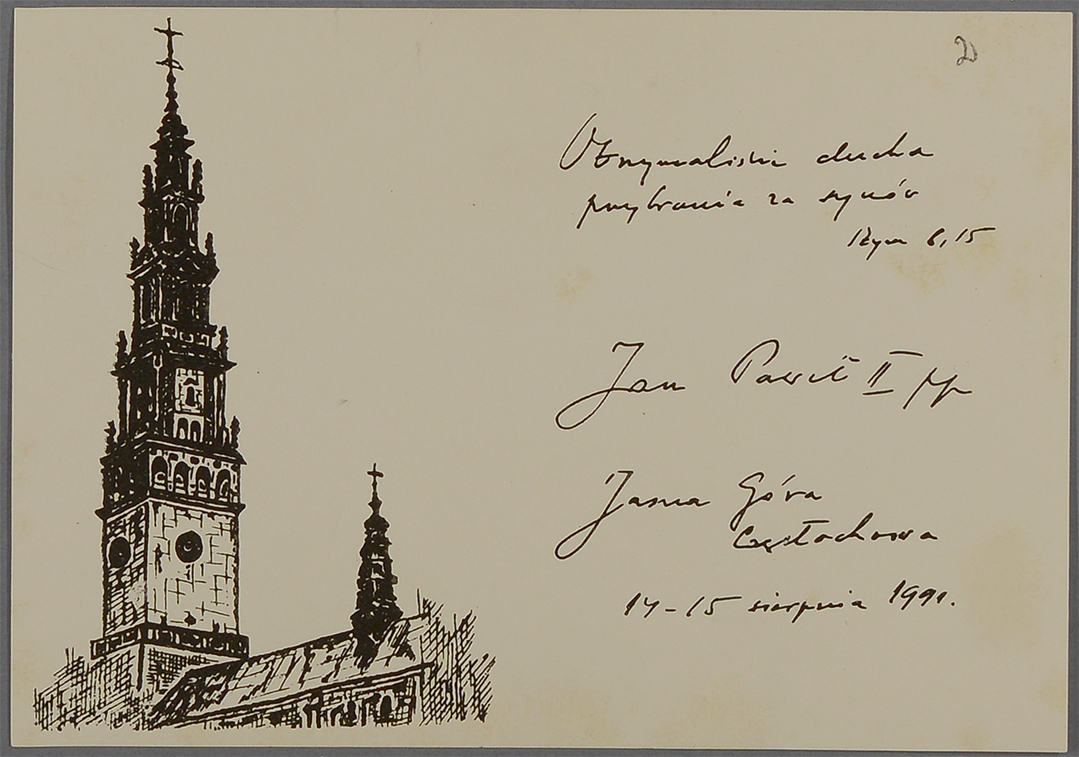 Otrzymaliście ducha
przybrania za synów
Rzym 8,15
Jan Paweł II pp
Jasna Góra
Częstochowa
14-15 sierpnia 1991.